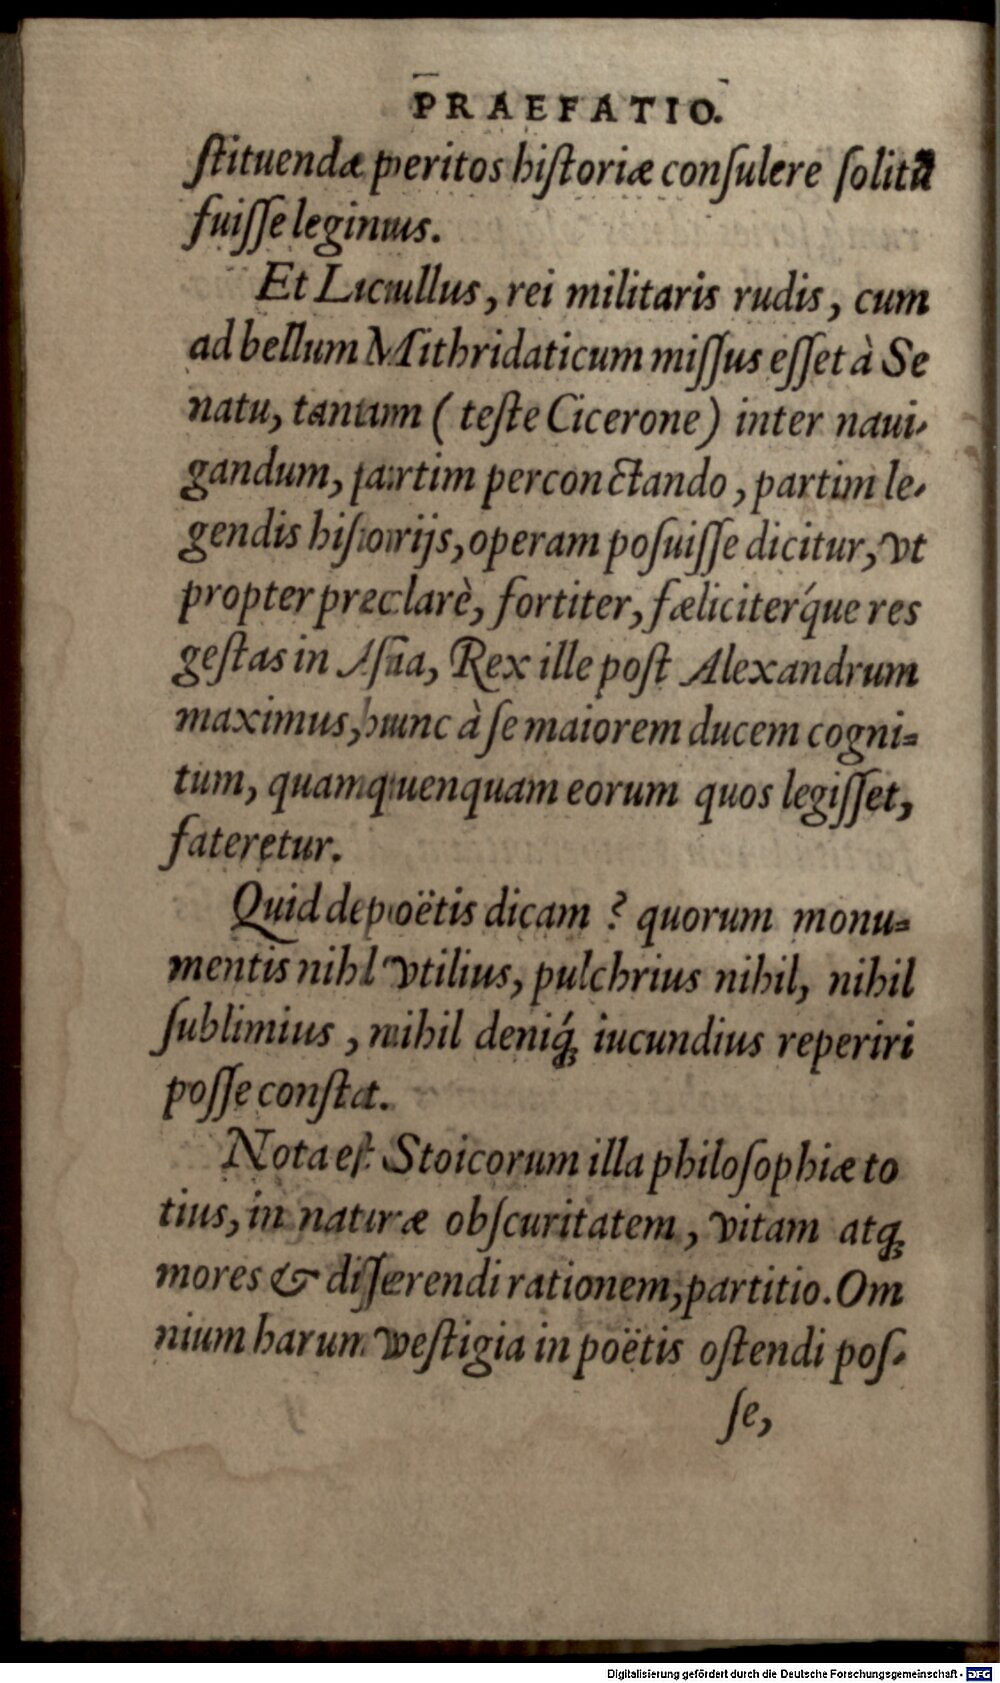 PRAEFATIO.
ſtituendæ peritos hiſtoriæ conſulere ſolitū
fuiſſe legimus.
Et Lucullus, rei militaris rudis, cum
ad bellum Mithridaticum miſſus eſſet à Se
natu, tantum ( teſte Cicerone ) inter naui-
gandum, partim perconctando, partim le-
gendis hiſtorijs, operam poſuiſſe dicitur, vt
propter preclarè, fortiter, fæliciterq́ue res
geſtas in Aſia, Rex ille poſt Alexandrum
maximus, hunc à ſe maiorem ducem cogni-
tum, quam quenquam eorum quos legiſſet,
fateretur.
Quid de poëtis dicam ? quorum monu-
mentis nihl vtilius, pulchrius nihil, nihil
ſublimius, nihil deniq́; iucundius reperiri
poſſe conſtat.
Nota eſt Stoicorum illa philoſophiæ to
tius, in naturæ obſcuritatem, vitam atq;
mores & diſſerendi rationem, partitio. Om
nium harum veſtigia in poëtis oſtendi poſ-
ſe,
Digitalisierung gefördert durch die Deutsche Forschungsgemeinschaft - DFG